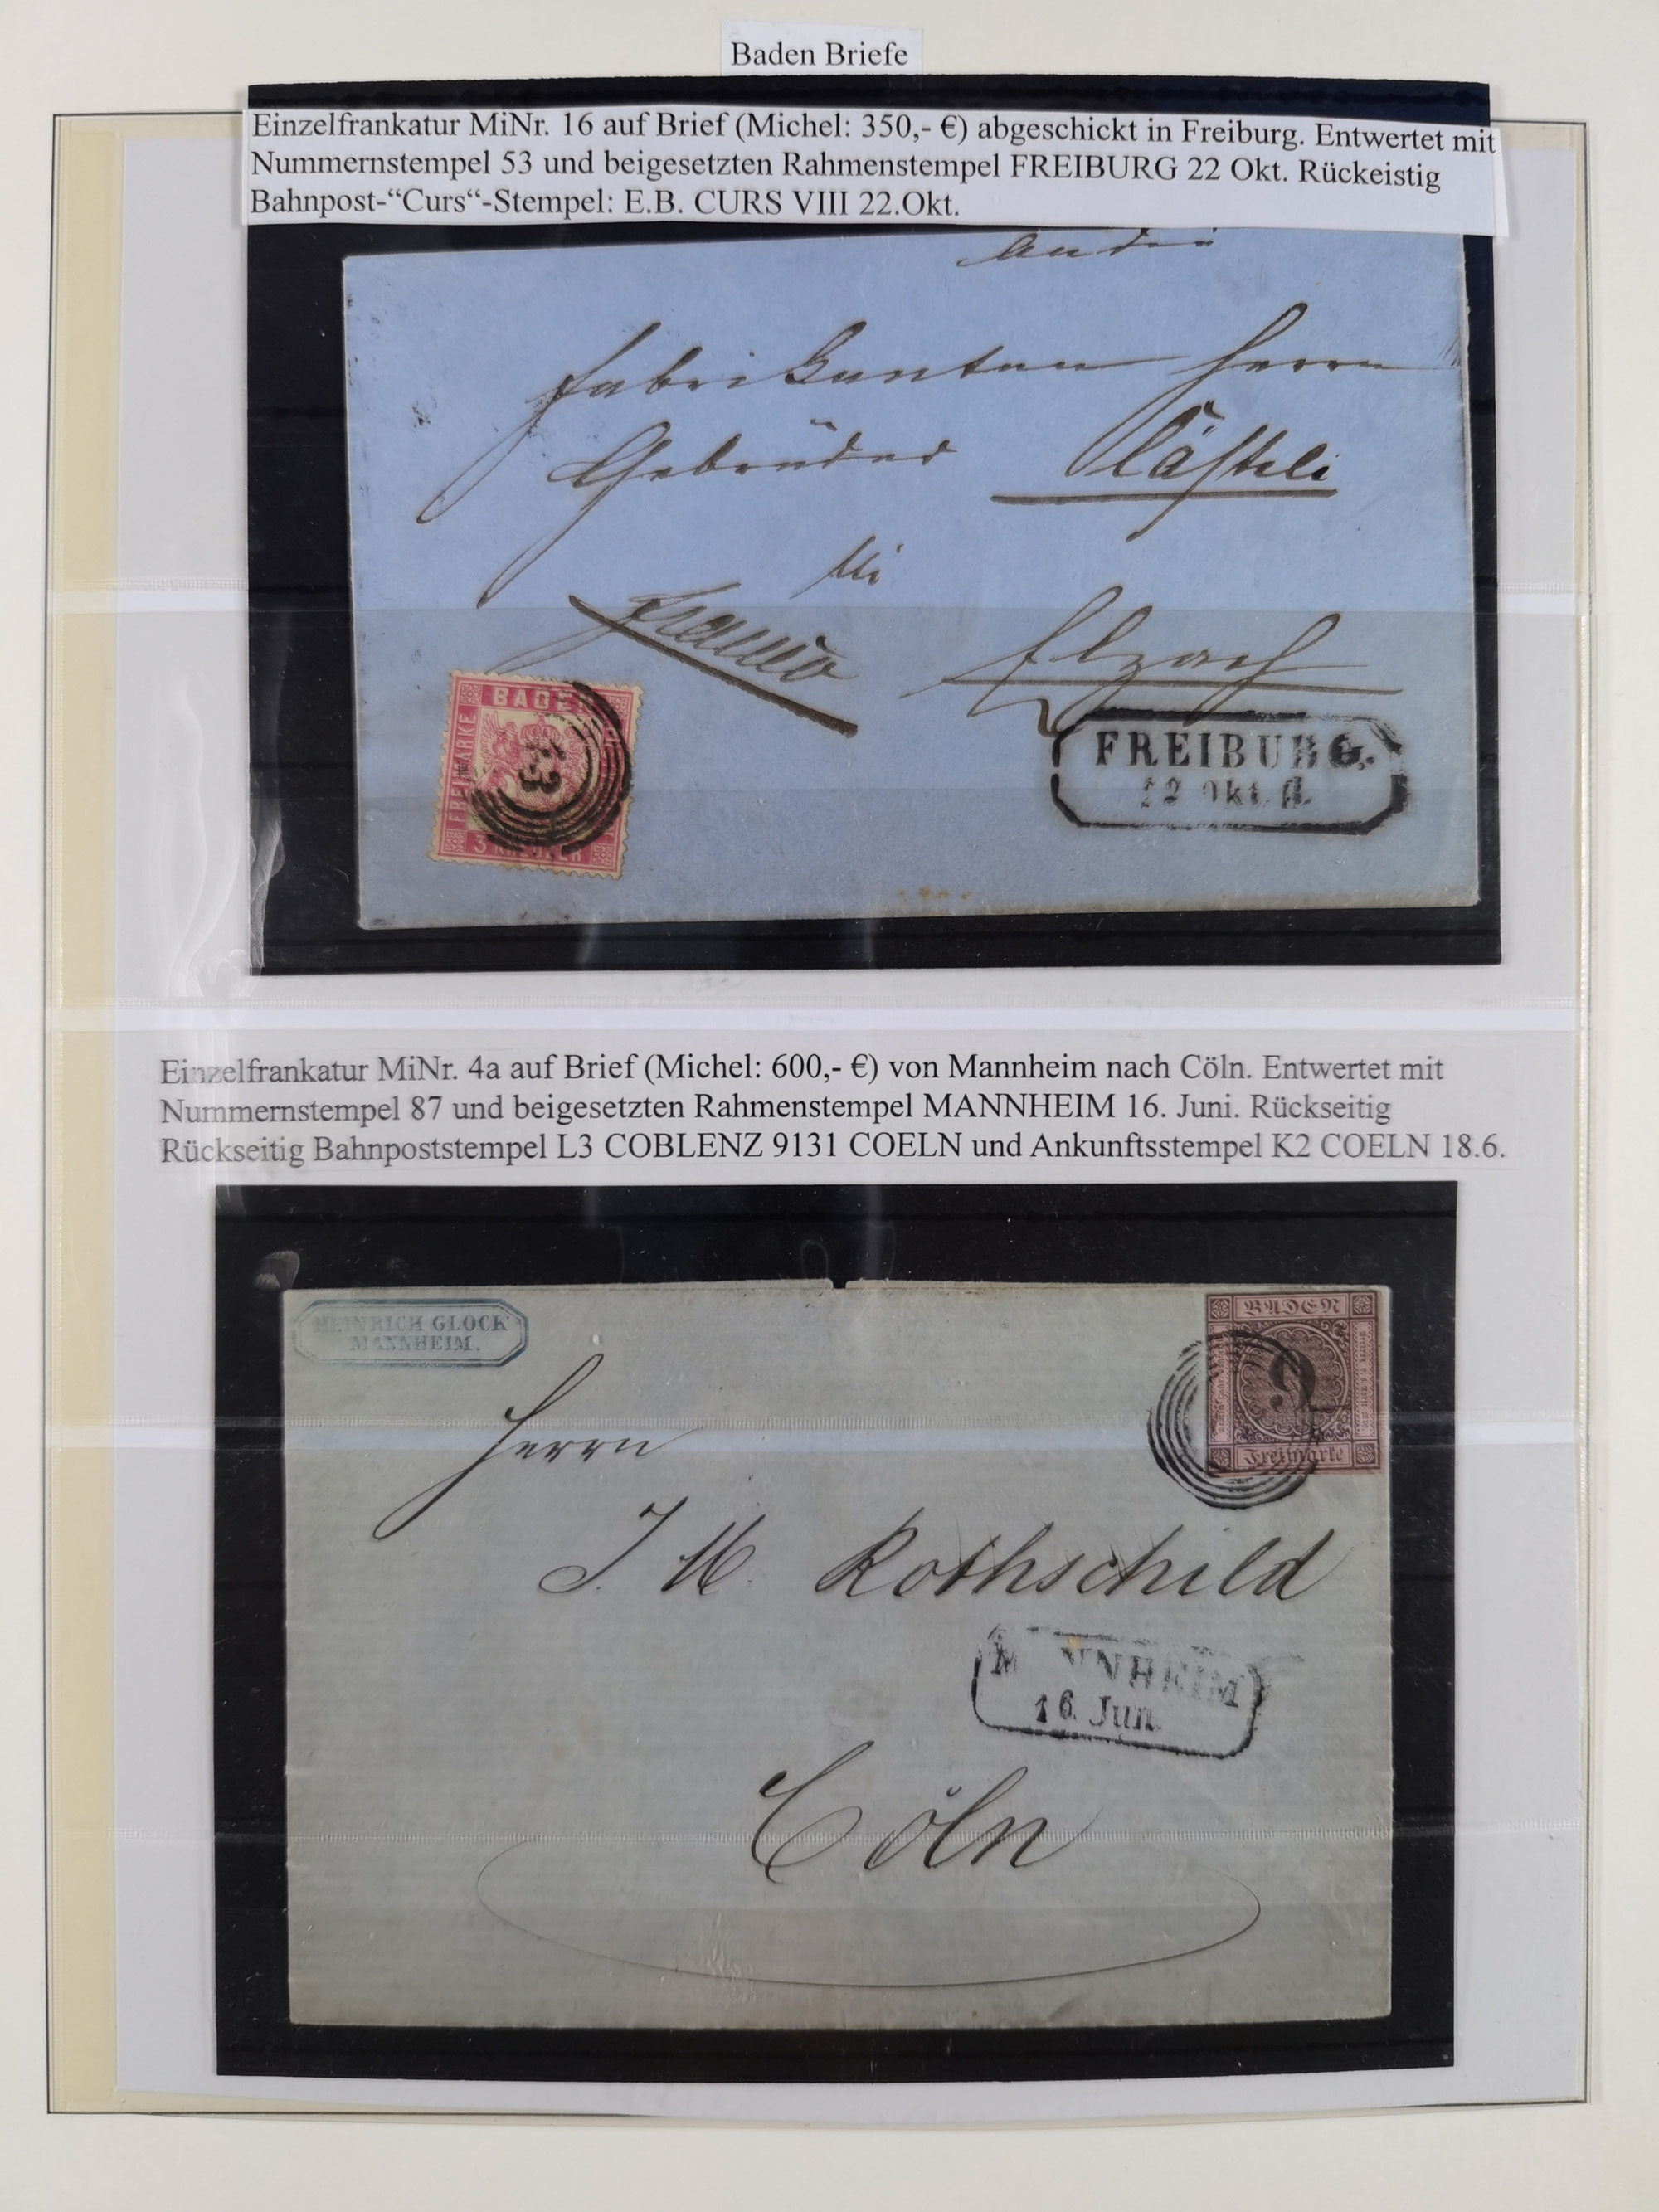 Baden Briefe
Einzelfrankatur MiNr. 16 auf Brief (Michel: 350,- €) abgeschickt in Freiburg. Entwertet mit
Nummernstempel 53 und beigesetzten Rahmenstempel FREIBURG 22 Okt. Rückeistig
Bahnpost-“Curs“-Stempel: E.B. CURS VIII 22.Okt.
Fabrikanten Herrn
Gebrüder
in
Franco Elzach
BADEN
FREIMARKE
53
3 KREUZER
FREIBURG.
22 Okt.
Einzelfrankatur MiNr. 4a auf Brief (Michel: 600,- €) von Mannheim nach Cöln. Entwertet mit
Nummernstempel 87 und beigesetzten Rahmenstempel MANNHEIM 16. Juni. Rückseitig
Rückseitig Bahnpoststempel L3 COBLENZ 9131 COELN und Ankunftsstempel K2 COELN 18.6.
HEINRICH GLOCK
MANNHEIM.
BADEN
9
Freimarke
Herrn
J. M. Rothschild
MANNHEIM
16. Jun.
Cöln